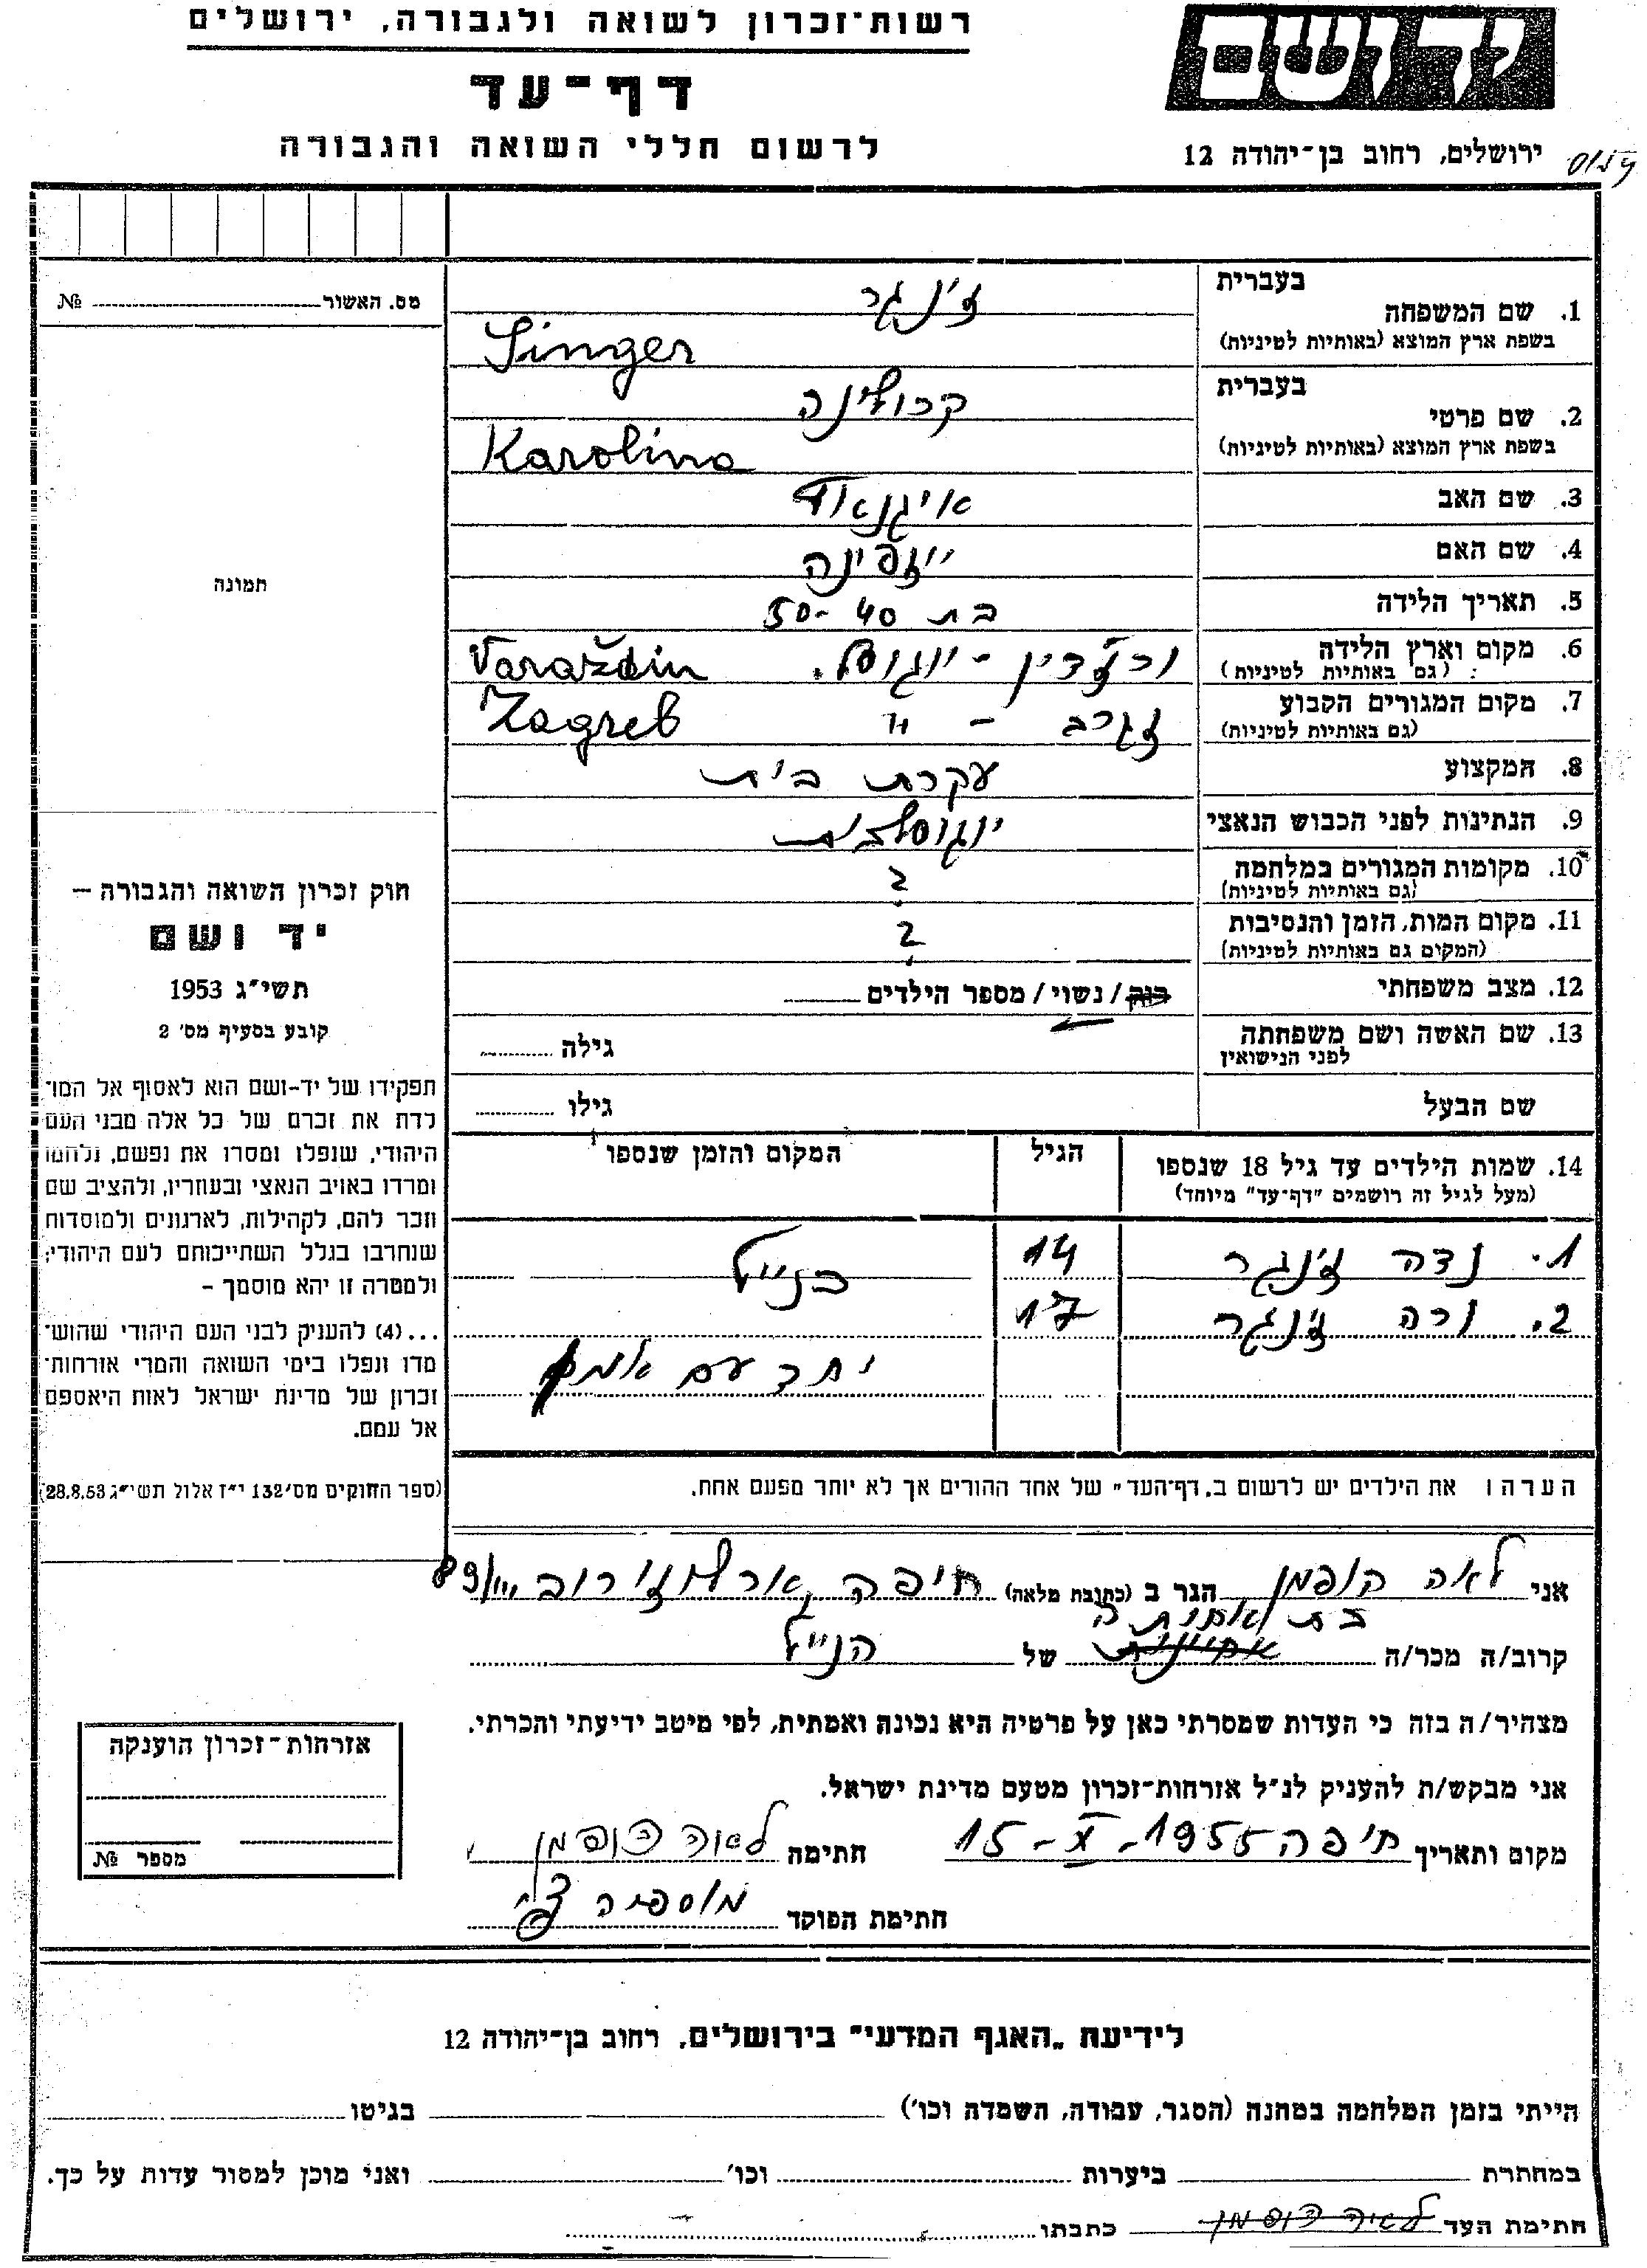 רשות־זכרון לשואה ולגבורה, ירושלים
דף־עד
לרשום חללי השואה והגבורה
יד ושם
ירושלים, רחוב בן־יהודה 12
מס. האשור № 
בעברית
1. שם המשפחה
ז'נגר
בשפת ארץ המוצא (באותיות לטיניות)
Singer
בעברית
2. שם פרטי
קרולינה
בשפת ארץ המוצא (באותיות לטיניות)
Karolina
3. שם האב
4. שם האם
יוזפינה
5. תאריך הלידה
בת 40-50
6. מקום וארץ הלידה
(גם באותיות לטיניות)
ורז'דין - יוגוסל. Varaždin
7. מקום המגורים הקבוע
(גם באותיות לטיניות)
זגרב - " Zagreb
8. המקצוע
עקרת בית
9. הנתינות לפני הכבוש הנאצי
יוגוסלבית
10. מקומות המגורים במלחמה
(גם באותיות לטיניות)
?
11. מקום המות, הזמן והנסיבות
(המקום גם באותיות לטיניות)
?
12. מצב משפחתי
רווק / נשוי / מספר הילדים
13. שם האשה ושם משפחתה
לפני הנישואין
גילה
שם הבעל
גילו
14. שמות הילדים עד גיל 18 שנספו
(מעל לגיל זה רושמים "דף־עד" מיוחד)
הגיל
המקום והזמן שנספו
1. נדה ז'נגר 14 כנ"ל
2. ורה ז'נגר 17
יחד עם אמן
הערה! את הילדים יש לרשום ב„דף־העד" של אחד ההורים אך לא יותר מפעם אחת.
תמונה
חוק זכרון השואה והגבורה –
יד ושם
תשי"ג 1953
קובע בסעיף מס' 2
תפקידו של יד-ושם הוא לאסוף אל המו־
לדת את זכרם של כל אלה מבני העם
היהודי, שנפלו ומסרו את נפשם, נלחמו
ומרדו באויב הנאצי ובעוזריו, ולהציב שם
וזכר להם, לקהילות, לארגונים ולמוסדות
שנחרבו בגלל השתייכותם לעם היהודי;
ולמטרה זו יהא מוסמך –
...(4) להעניק לבני העם היהודי שהוש־
מדו ונפלו בימי השואה והמרי אזרחות־
זכרון של מדינת ישראל לאות היאספם
אל עמם.
(ספר החוקים מס' 132 י"ז אלול תשי"ג 28.8.53)
אני לאה הופמן הגר ב (כתובת מלאה) חיפה
בת אחותה
קרוב/ה מכר/ה של הנ"ל
מצהיר/ה בזה כי העדות שמסרתי כאן על פרטיה היא נכונה ואמתית, לפי מיטב ידיעתי והכרתי.
אני מבקש/ת להעניק לנ"ל אזרחות־זכרון מטעם מדינת ישראל.
מקום ותאריך חיפה 15-X-1955 חתימה לאה הופמן
חתימת הפוקד
אזרחות־זכרון הוענקה
מספר №
לידיעת „האגף המדעי" בירושלים, רחוב בן־יהודה 12
הייתי בזמן המלחמה במחנה (הסגר, עבודה, השמדה וכו') בגיטו
במחתרת ביערות וכו' ואני מוכן למסור עדות על כך.
חתימת העד לאה הופמן כתבתו